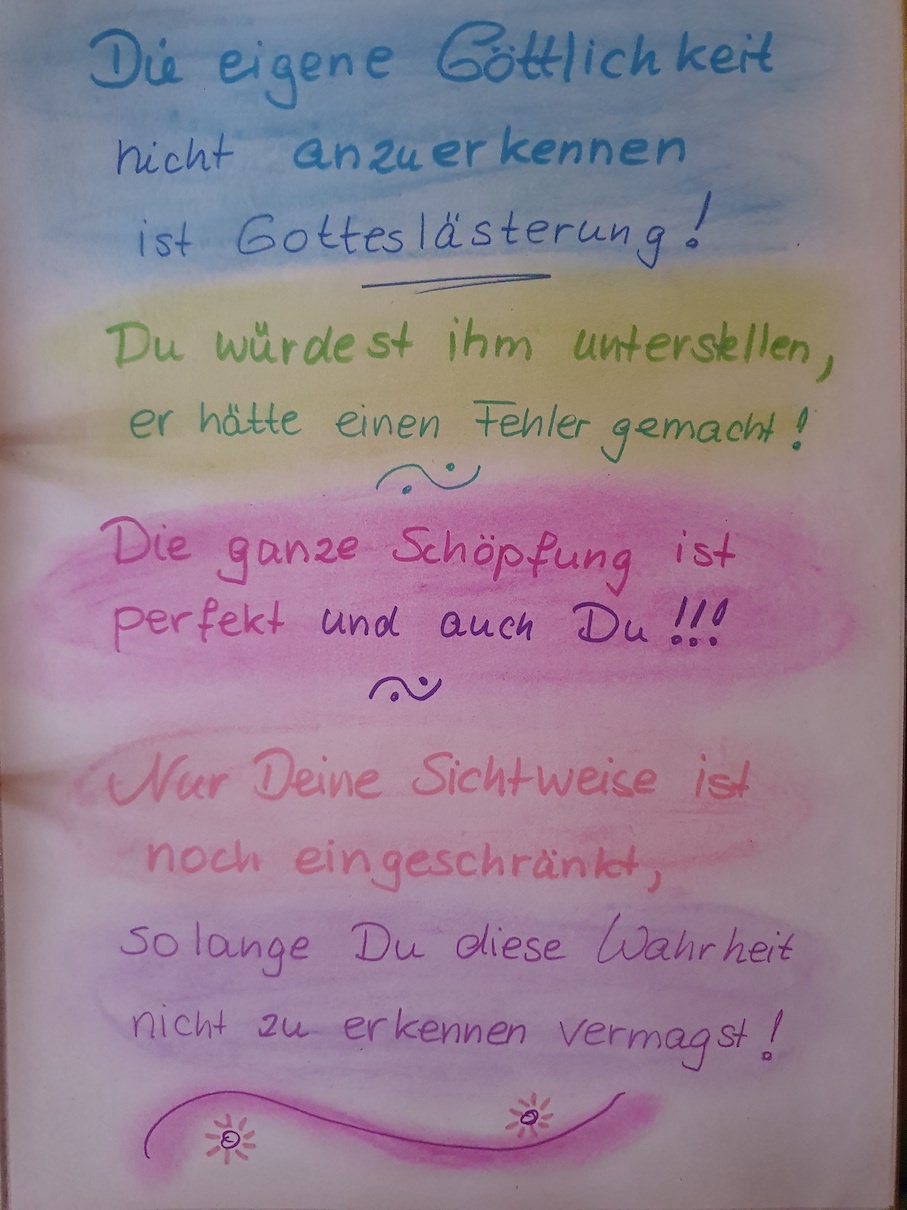 Die eigene Göttlichkeit
nicht anzuerkennen
ist Gotteslästerung!
Du würdest ihm unterstellen,
er hätte einen Fehler gemacht!
Die ganze Schöpfung ist
perfekt und auch Du!!!
Nur Deine Sichtweise ist
noch eingeschränkt,
solange Du diese Wahrheit
nicht zu erkennen vermagst!